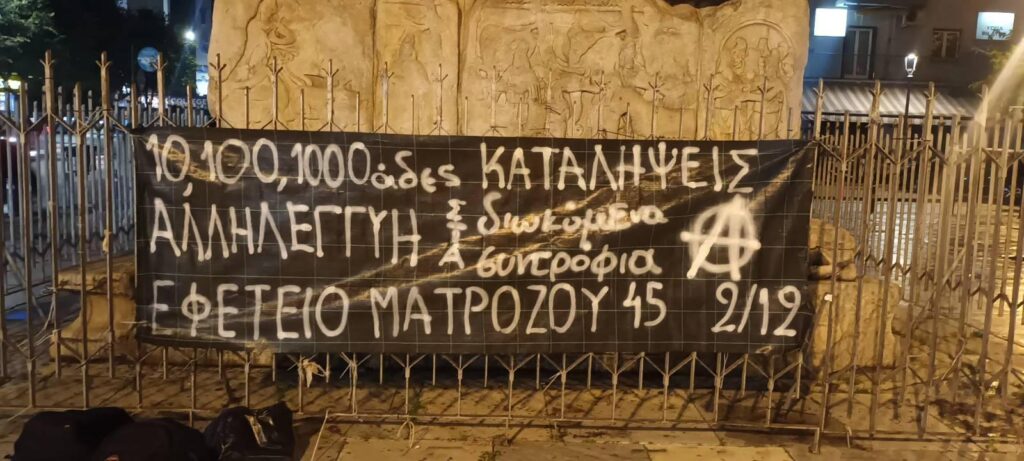 10,100,1000άδες ΚΑΤΑΛΗΨΕΙΣ
ΑΛΛΗΛΕΓΓΥΗ ΣΤΑ διωκόμενα συντρόφια
ΕΦΕΤΕΙΟ ΜΑΤΡΟΖΟΥ 45 2/12